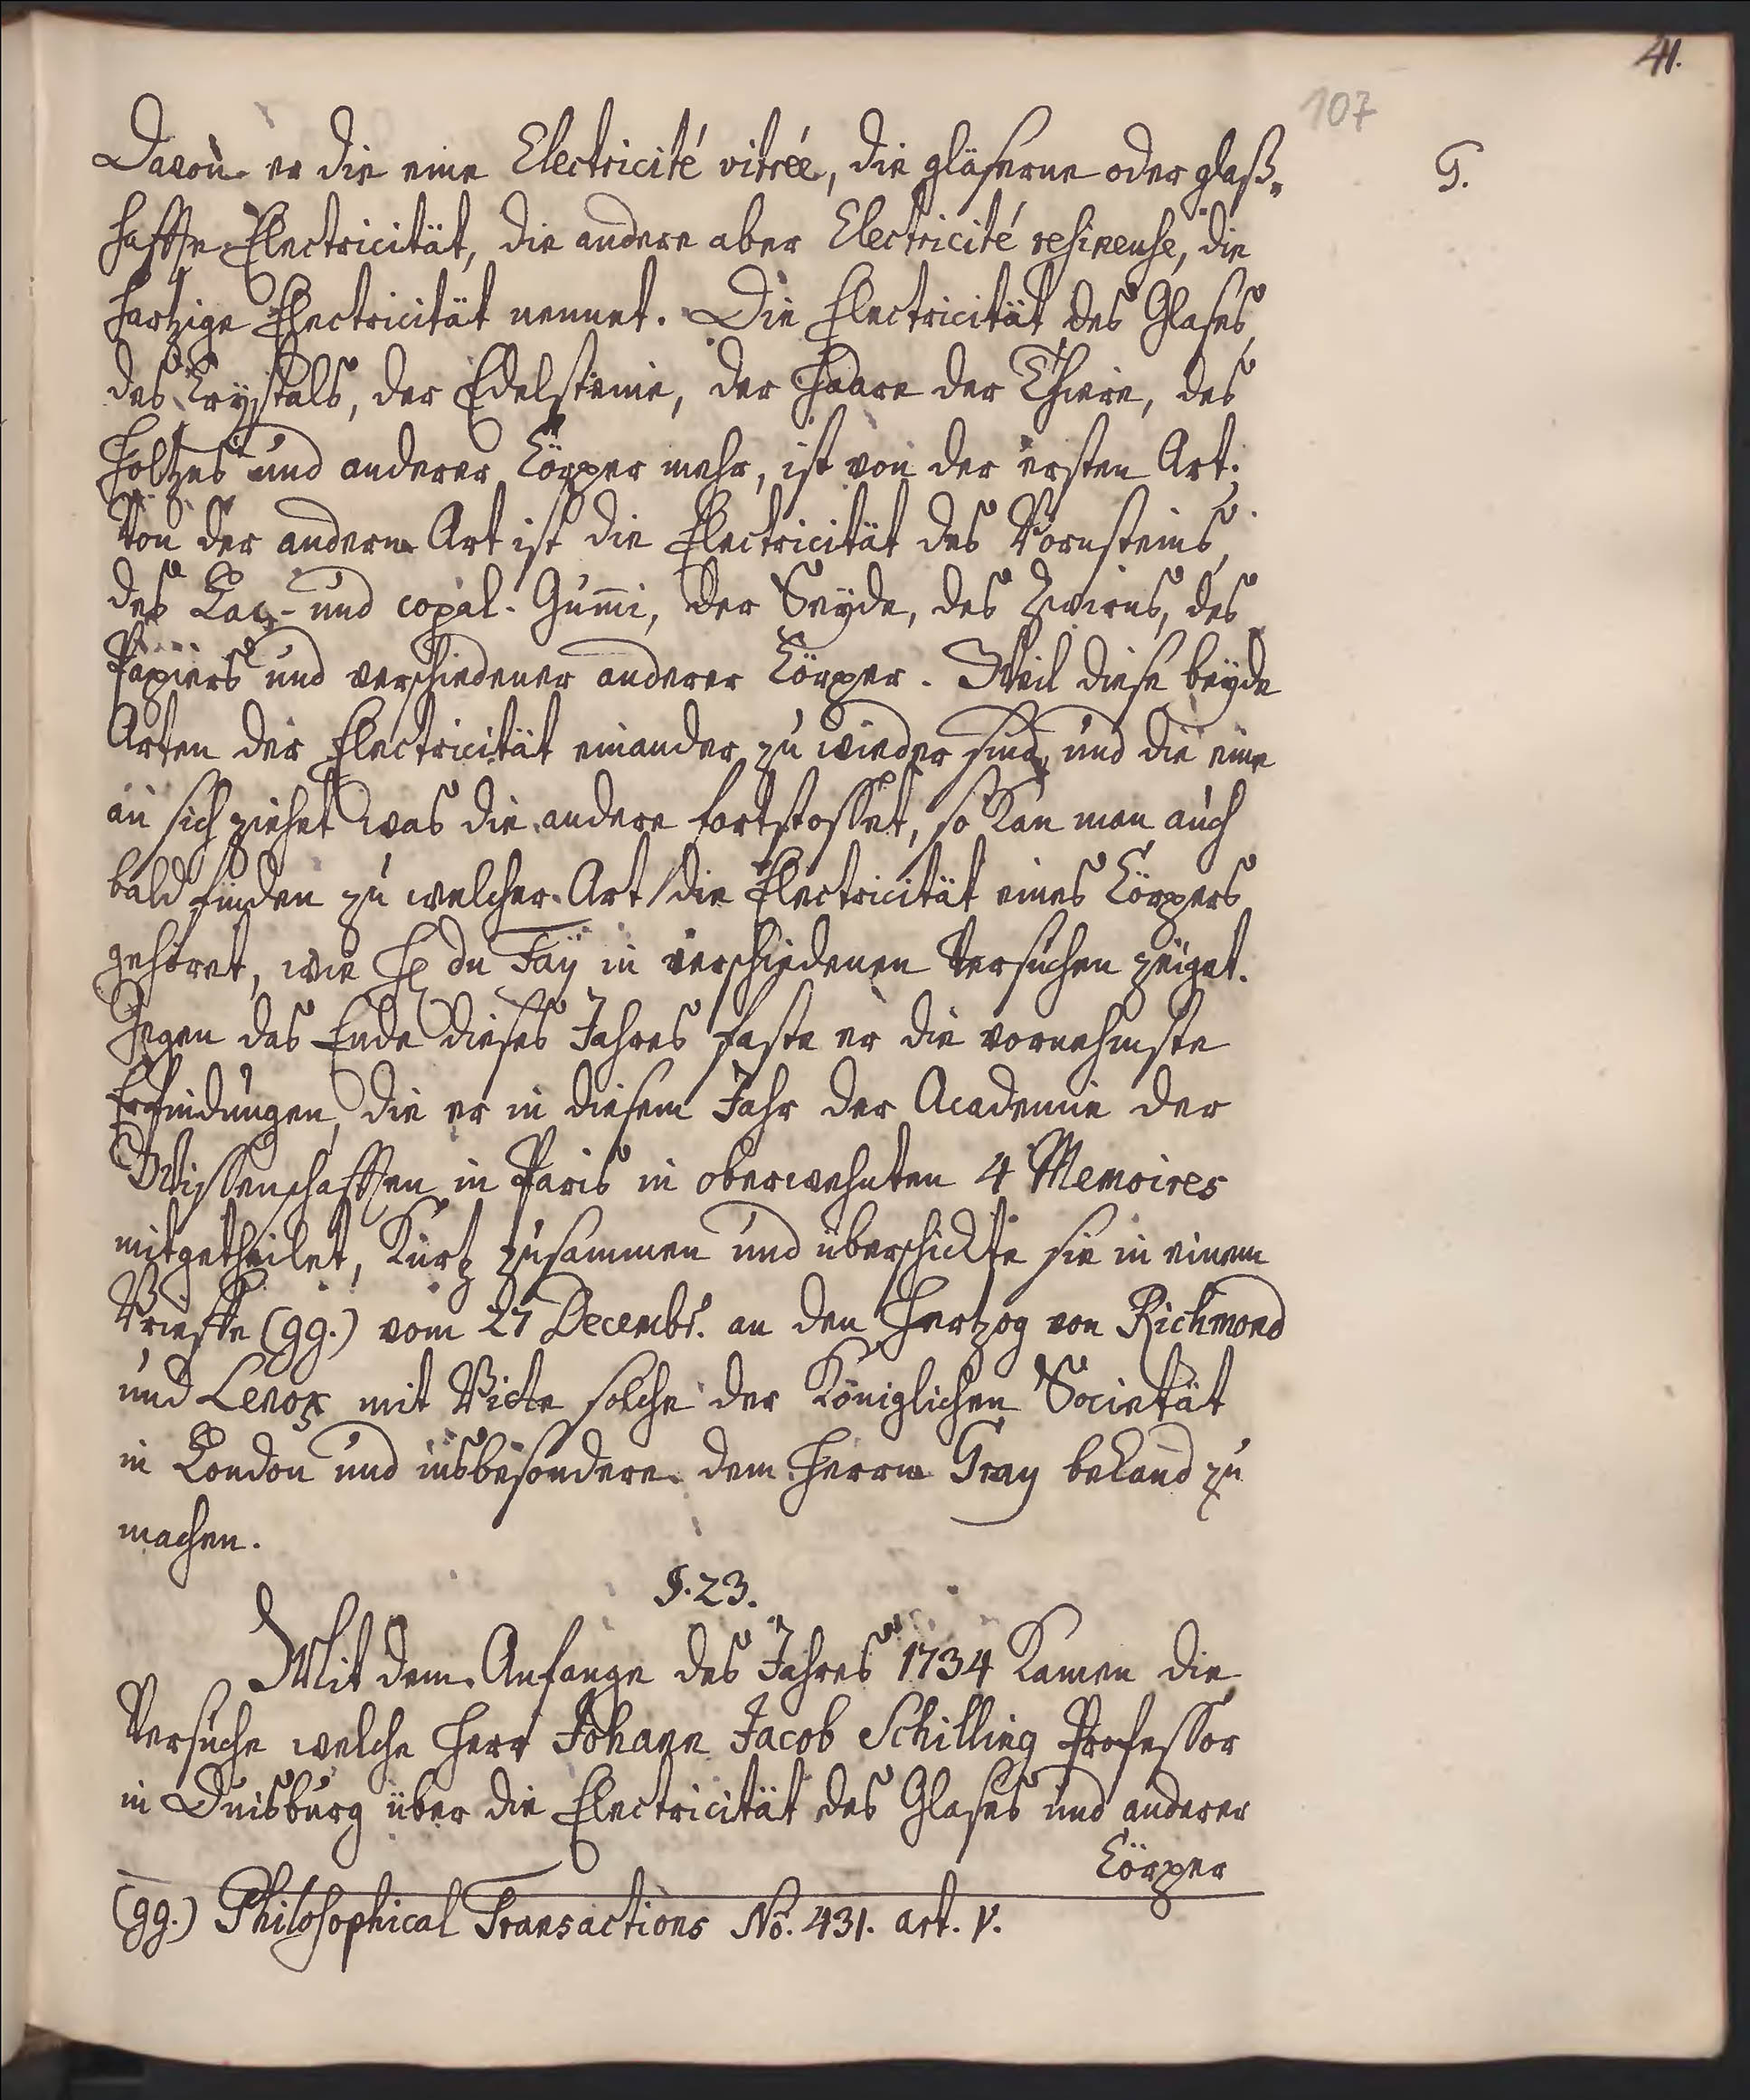 41.
107
G.
Davon er die eine Electricité vitrée, die gläserne oder glaß-
haffte Electricität, die andere aber Electricité resineuse, die
hartzige Electricität nennet. Die Electricität des Glases,
des Crystals, der Edelsteine, der Haare der Thiere, des
Holtzes und anderer Cörper mehr, ist von der ersten Art;
Von der andern Art ist die Electricität des Börnsteins,
des Lac- und copal-Gummi, der Seyde, des Zwirns, des
Papiers und verschiedener anderer Cörper. Weil diese beyde
Arten der Electricität einander zu wieder sind, und die eine
an sich ziehet was die andere fortstosset, so kan man auch
bald finden zu welcher Art die Electricität eines Cörpers
gehöret, wie H. du Faÿ in verschiedenen Versuchen zeiget.
Gegen das Ende dieses Jahres faste er die vornehmste
Erfindungen, die er in diesem Jahr der Academie der
Wissenschafften in Paris in oberwehnten 4 Memoires
mitgetheilet, kurtz zusammen und überschickte sie in einem
Brieffe (gg.) vom 27 Decembr. an den Hertzog von Richmond
und Lenox mit Bitte solche der Königlichen Societät
in London und insbesondere dem Herrn Gray bekand zu
machen.
§. 23.
Mit dem Anfange des Jahres 1734 kamen die
Versuche welche Herr Johann Jacob Schilling Professor
in Duisburg über die Electricität des Glases und anderer
Cörper
(gg.) Philosophical Transactions No. 431. art. V.